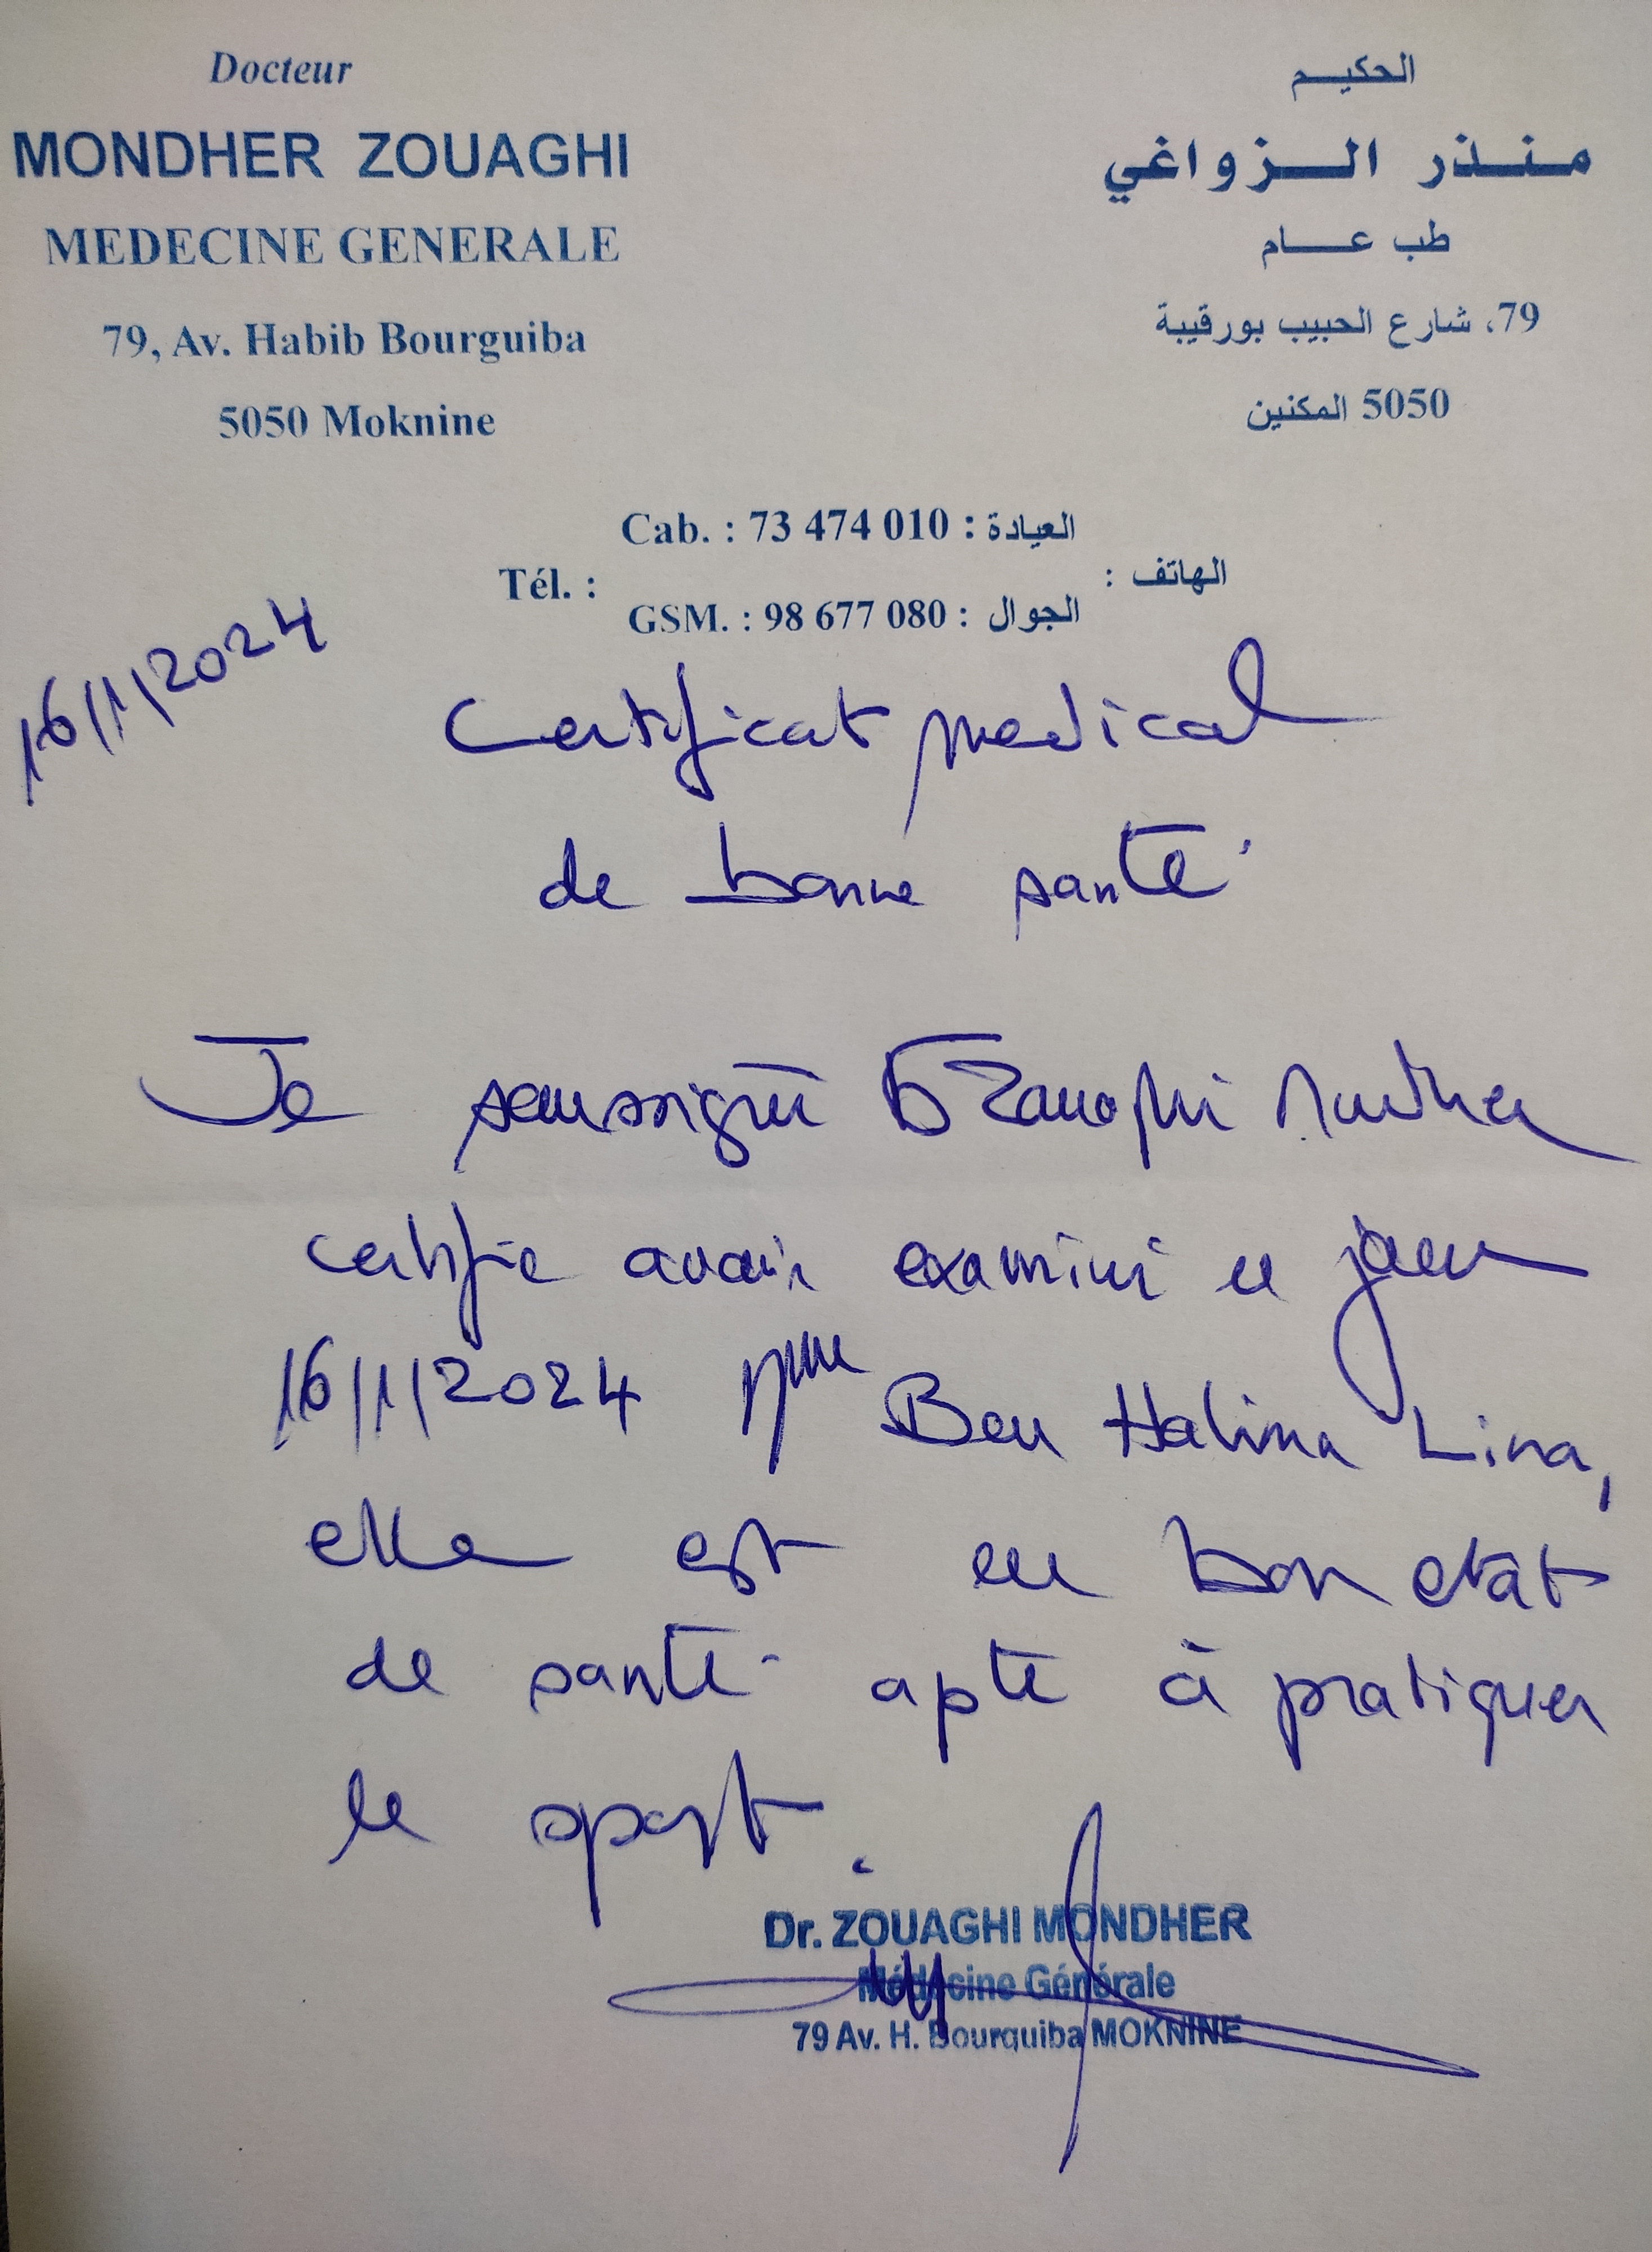 Docteur
MONDHER ZOUAGHI
MEDECINE GENERALE
79, Av. Habib Bourguiba
5050 Moknine
الحكيم
منذر الزواغي
طب عام
79، شارع الحبيب بورقيبة
5050 المكنين
Cab. : 73 474 010 : العيادة
Tél. : الهاتف :
GSM. : 98 677 080 : الجوال
16/1/2024
Certificat medical
de bonne santé
Je soussigné Dr Zouaghi Mondher
certifie avoir examiné ce jour
16/1/2024 Mme Ben Halima Lina,
elle est en bon etat
de santé apte à pratiquer
le sport.
Dr. ZOUAGHI MONDHER
Médecine Générale
79 Av. H. Bourguiba MOKNINE